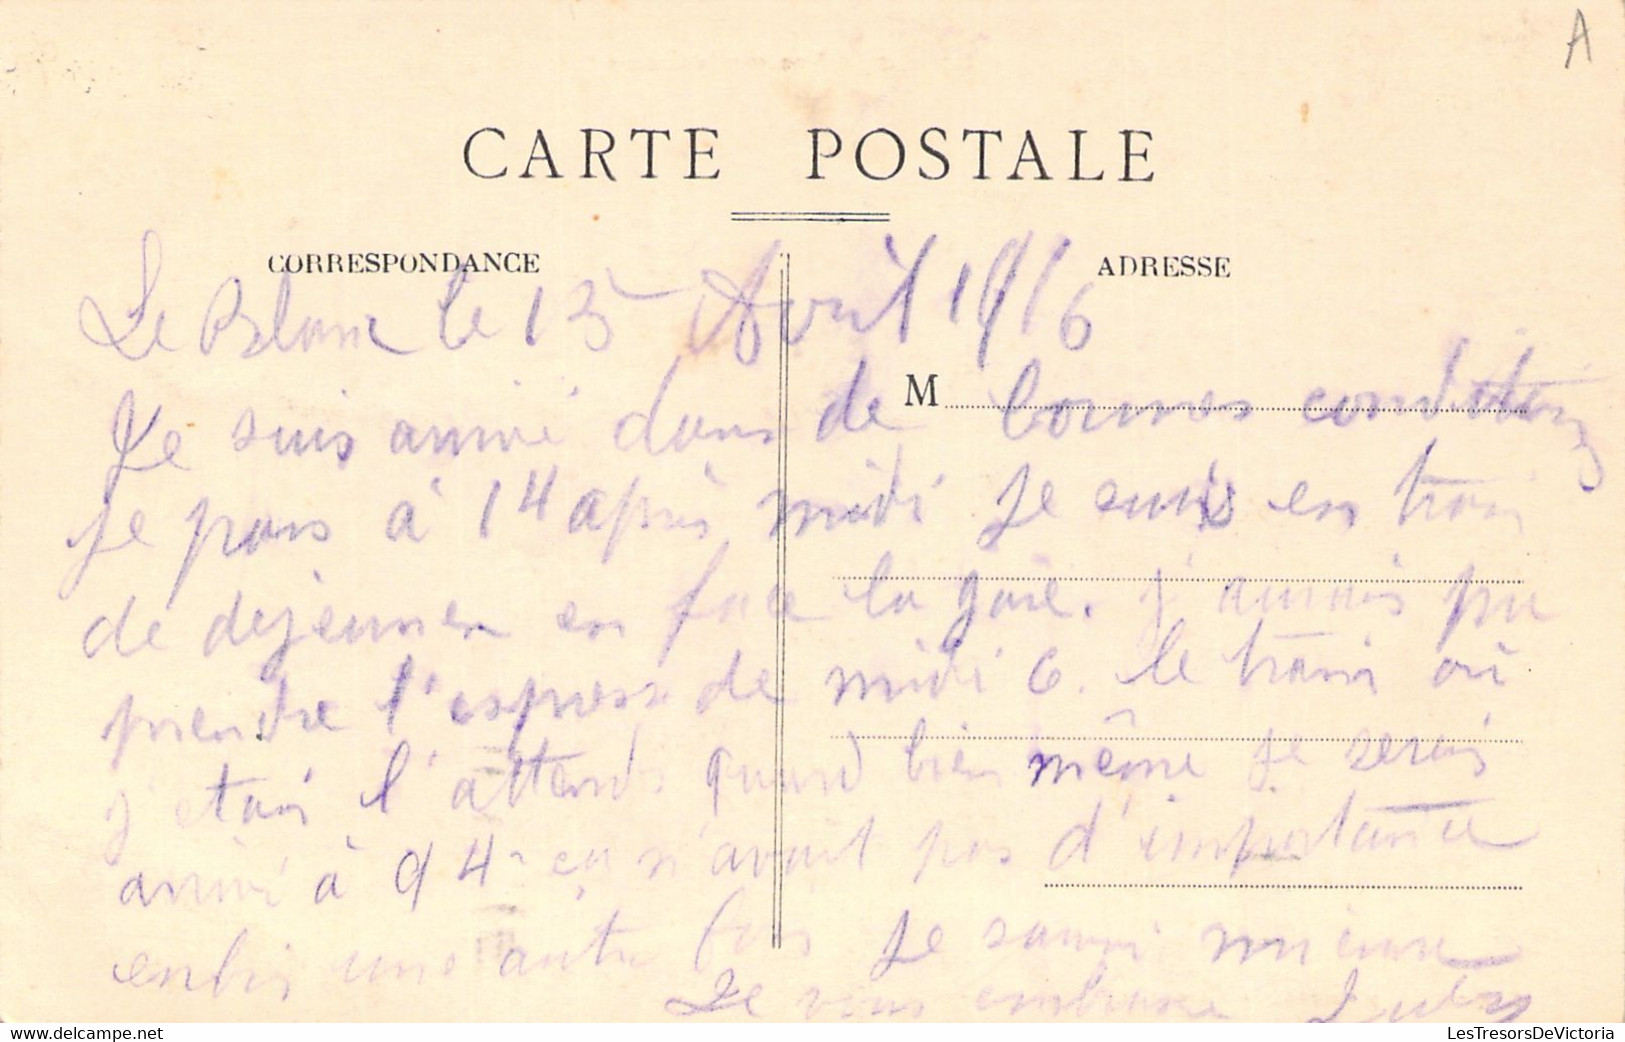 A
CARTE POSTALE
CORRESPONDANCE
ADRESSE
Le Blanc le 15 Avril 1916
M
Je suis arrivé dans de bonnes conditions
je pars à 14 après midi Je suis en train
de dejeuner en face la gare. j'aurais pu
prendre l'express de midi 6. le train où
j'etais l'attends quand bien même je serais
arrivé à 94 ça n'avait pas d'importance
enfin une autre fois Je saurai mieux
Je vous embrasse Jules
LesTresorsDeVictoria